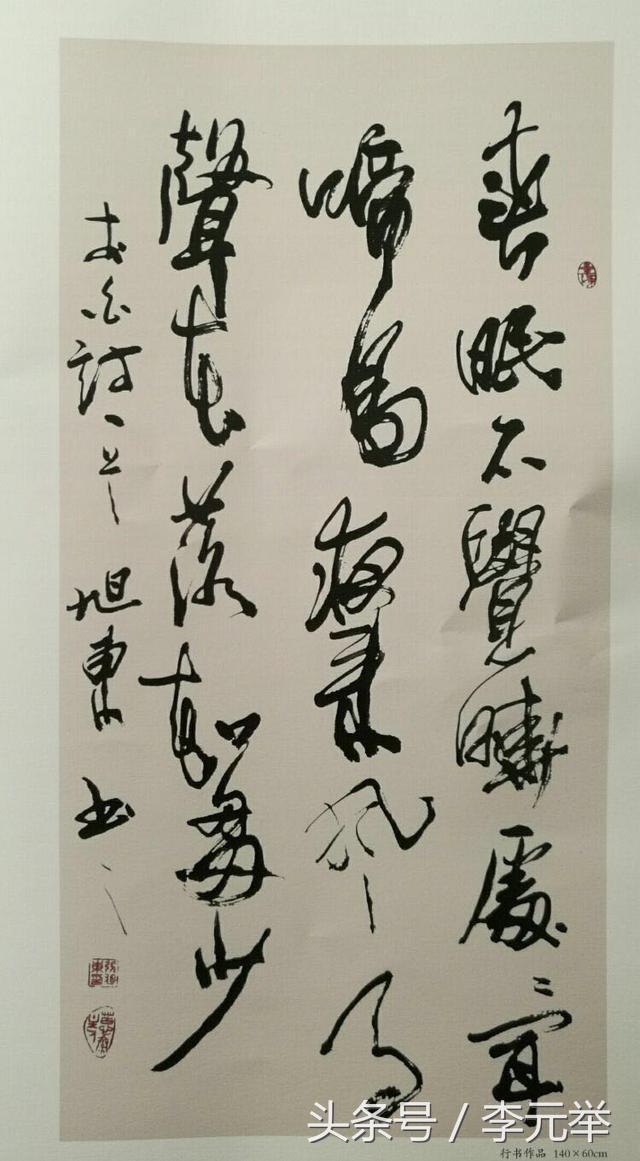 春眠不覺曉處〻聞
啼鳥夜來風雨
聲花落知多少
詩一首 旭東書
头条号 / 李元举
行书作品 140×60cm